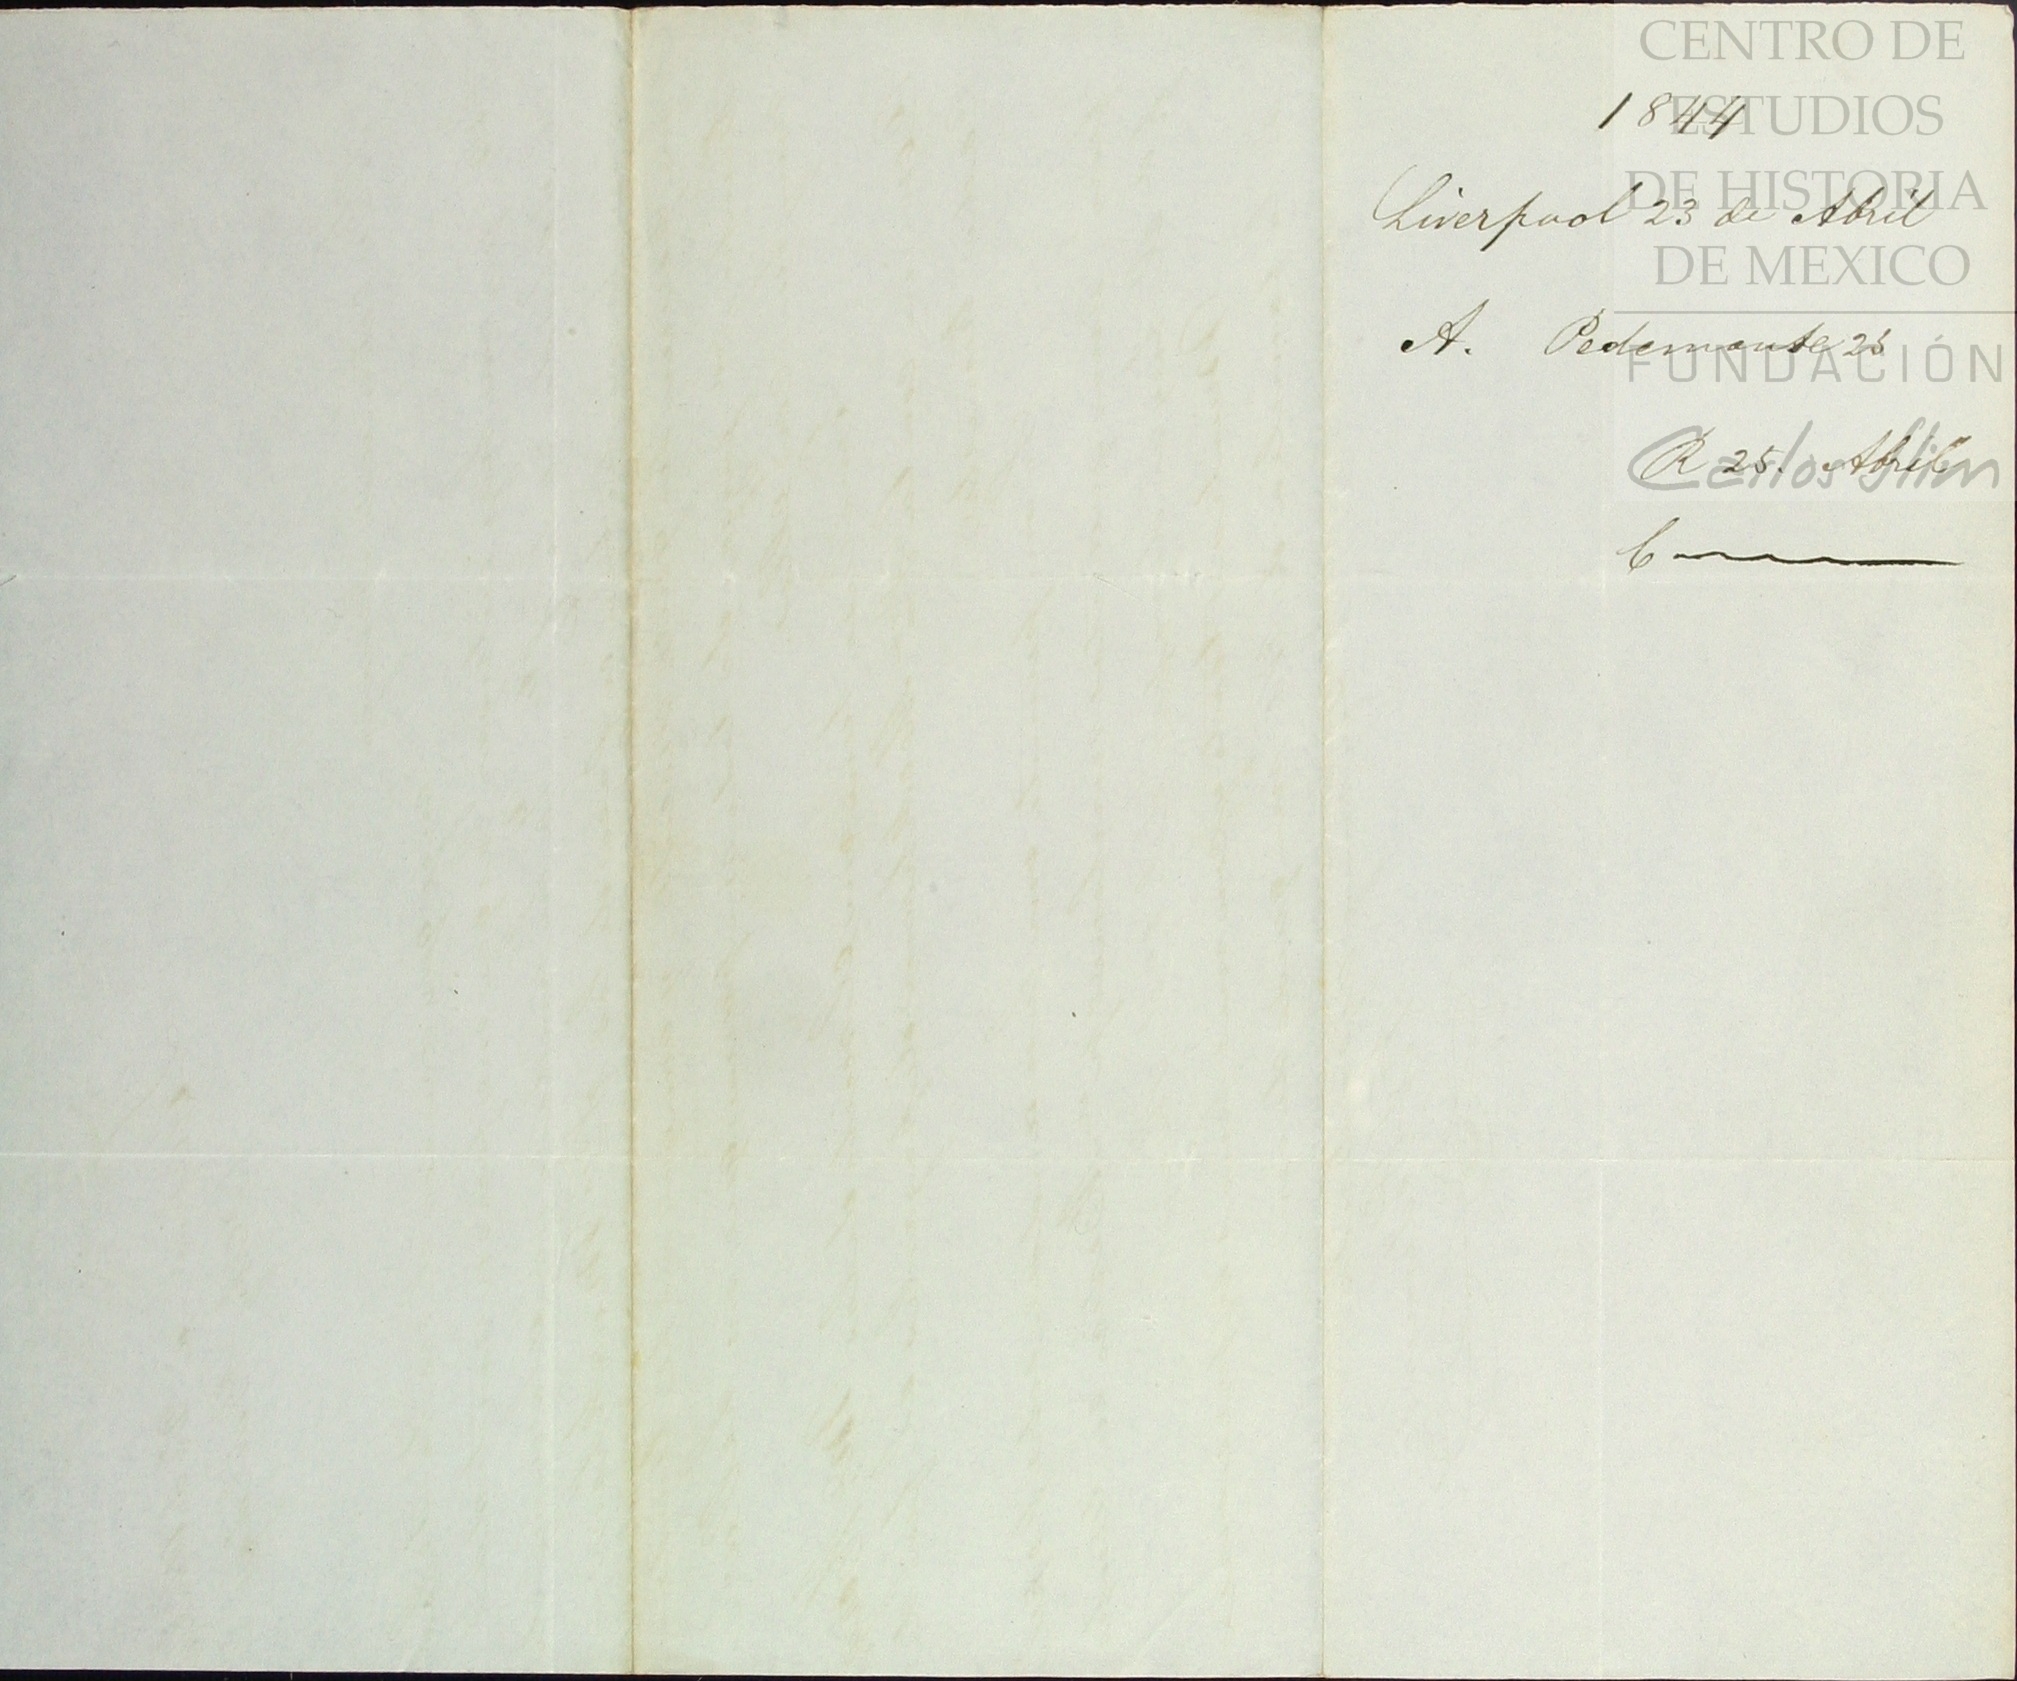 1844
Liverpool 23 de Abril
A. Pedemonte 25
R 25. Abril
C
CENTRO DE
ESTUDIOS
DE HISTORIA
DE MEXICO
FUNDACIÓN
Carlos Slim